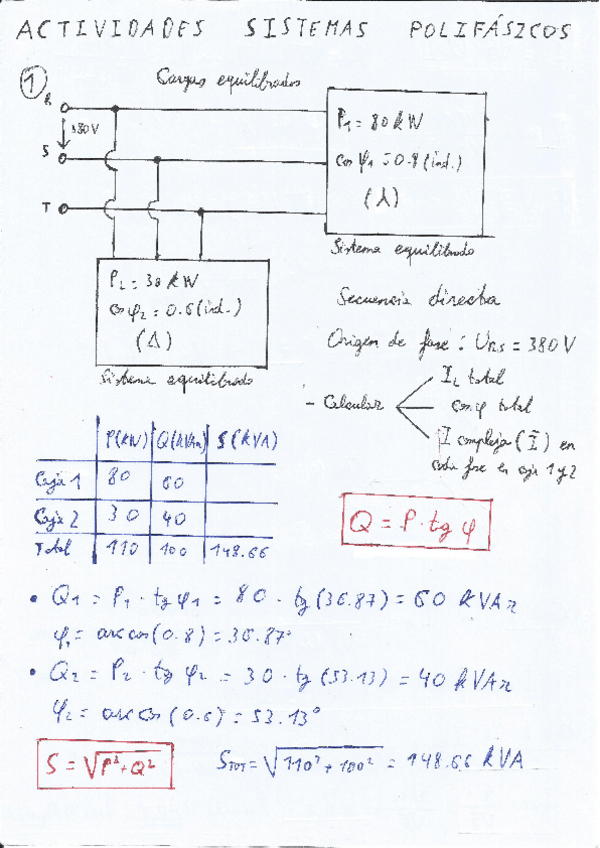 ACTIVIDADES SISTEMAS POLIFÁSICOS
1
Cargas equilibradas
R
380V
S
T
P1 = 80 kW
cos φ1 = 0.8 (ind.)
(⅄)
Sistema equilibrado
P2 = 30 kW
cos φ2 = 0.6 (ind.)
(Δ)
Sistema equilibrado
Secuencia directa
Origen de fase : URS = 380 V
- Calcular
IL total
cos φ total
I compleja (Ī) en
cada fase en caja 1 y 2
P(kW) Q(kVAr) S(kVA)
Caja 1 80 60
Caja 2 30 40
Total 110 100 148.66
Q = P · tg φ
• Q1 = P1 · tg φ1 = 80 · tg (36.87) = 60 kVAr
φ1 = arc cos (0.8) = 36.87°
• Q2 = P2 · tg φ2 = 30 · tg (53.13) = 40 kVAr
φ2 = arc cos (0.6) = 53.13°
S = √P²+Q²
STOT = √110² + 100² = 148.66 kVA